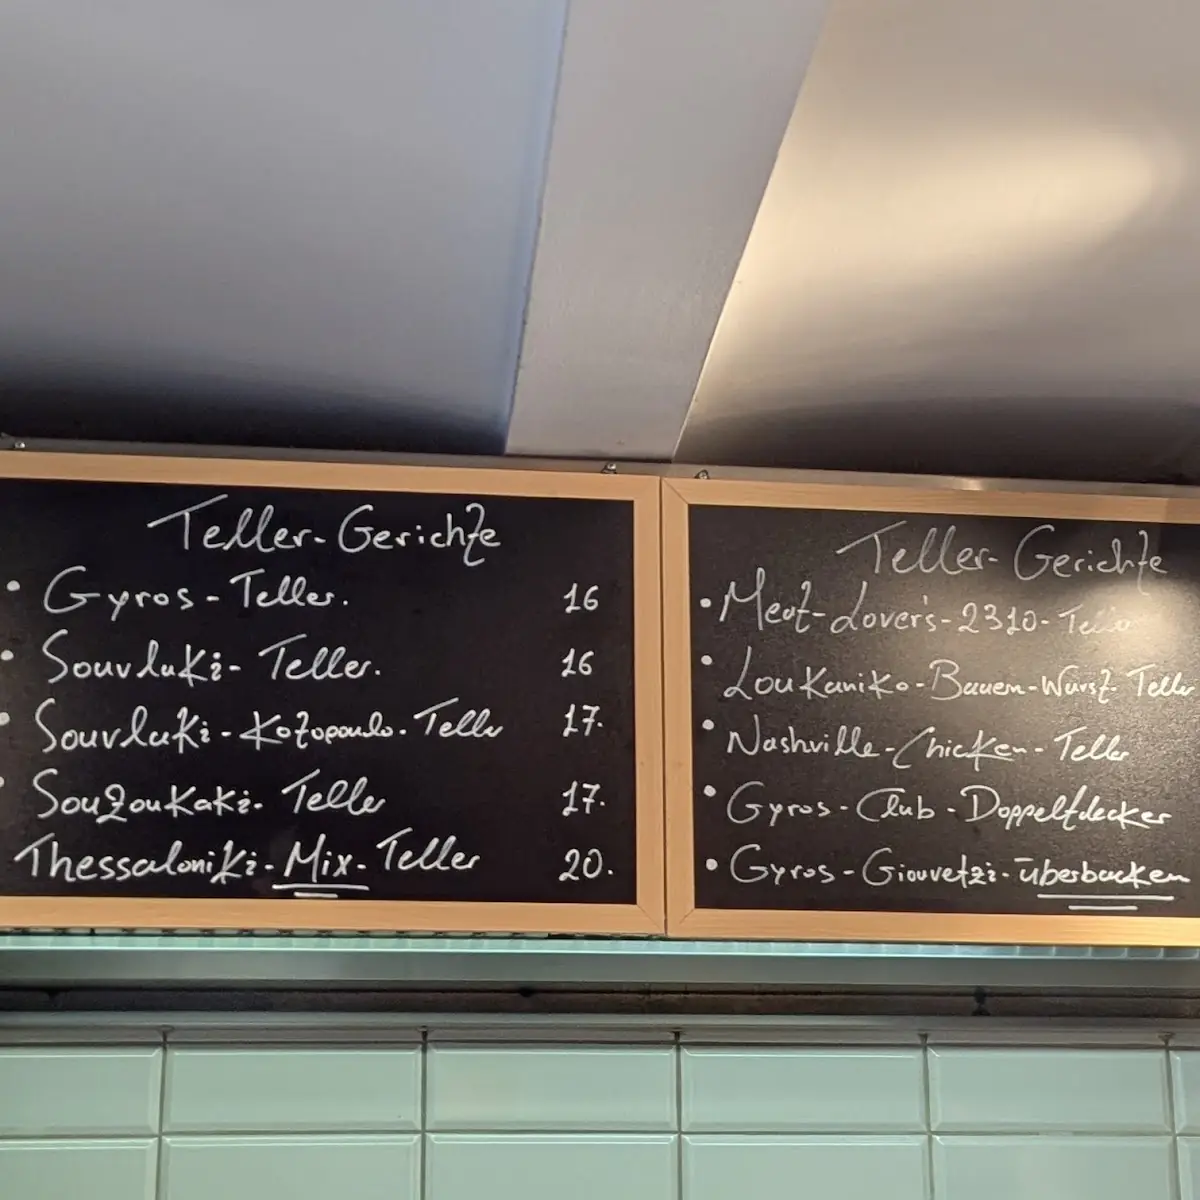 Teller-Gerichte
• Gyros-Teller. 16
• Souvlaki-Teller. 16
• Souvlaki-Kotopoulo-Teller 17.
• Souzoukaki-Teller 17.
Thessaloniki-Mix-Teller 20.
Teller-Gerichte
• Meat-Lover's-2310-Teller
• Loukaniko-Bauern-Wurst-Teller
• Nashville-Chicken-Teller
• Gyros-Club-Doppeldecker
• Gyros-Giouvetzi-überbacken